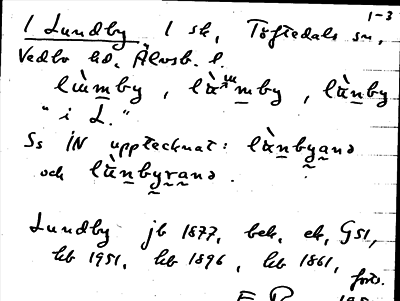 1-3
1 Lundby 1 sk, Töftedals sn,
Vedbo hd. Älvsb. l.
lùmby, lùmby, lùnby
" i L."
Ss IN upptecknat: lùnbyanə
och lùnbyranə.
Lundby jb 1877, bek, ek, GSI,
kb 1951, kb 1896, kb 1861,